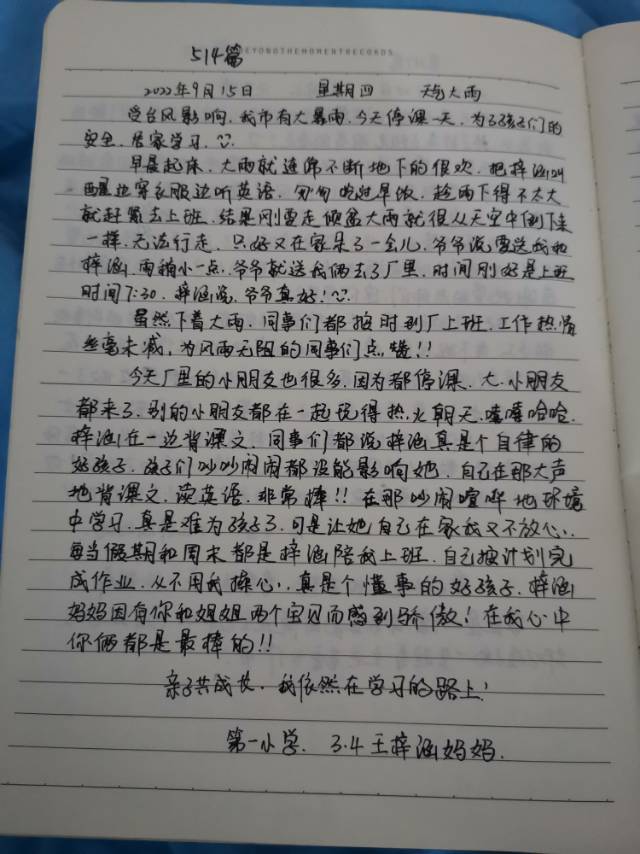 514篇
BEYONDTHEMOMENTRECORDS
2022年9月15日 星期四 天气大雨
受台风影响,我市有大暴雨,今天停课一天,为了孩子们的
安全,居家学习,
早晨起床,大雨就连绵不断地下的很欢,把梓涵叫
醒边穿衣服边听英语,匆匆吃过早饭,趁雨下得不太大
就赶紧去上班,结果刚要走倾盆大雨就很从天空中倒下来
一样,无法行走,只好又在家呆了一会儿,爷爷说要送我和
梓涵,雨稍小一点,爷爷就送我俩去了厂里,时间刚好是上班
时间7:30,梓涵说,爷爷真好!
虽然下着大雨,同事们都按时到厂上班,工作热情
丝毫未减,为风雨无阻的同事们点赞!!
今天厂里的小朋友也很多,因为都停课,大、小朋友
都来了,别的小朋友都在一起玩得热火朝天,嘻嘻哈哈,
梓涵在一边背课文,同事们都说梓涵真是个自律的
好孩子,孩子们吵吵闹闹都没能影响她,自己在那大声
地背课文,读英语,非常棒!!在那吵闹喧哗地环境
中学习,真是难为孩子了,可是让她自己在家我又不放心,
每当假期和周末都是梓涵陪我上班,自己按计划完
成作业,从不用我操心,真是个懂事的好孩子,梓涵
妈妈因有你和姐姐两个宝贝而感到骄傲!在我心中
你俩都是最棒的!!
亲子共成长,我依然在学习的路上!
第一小学, 3.4王梓涵妈妈.